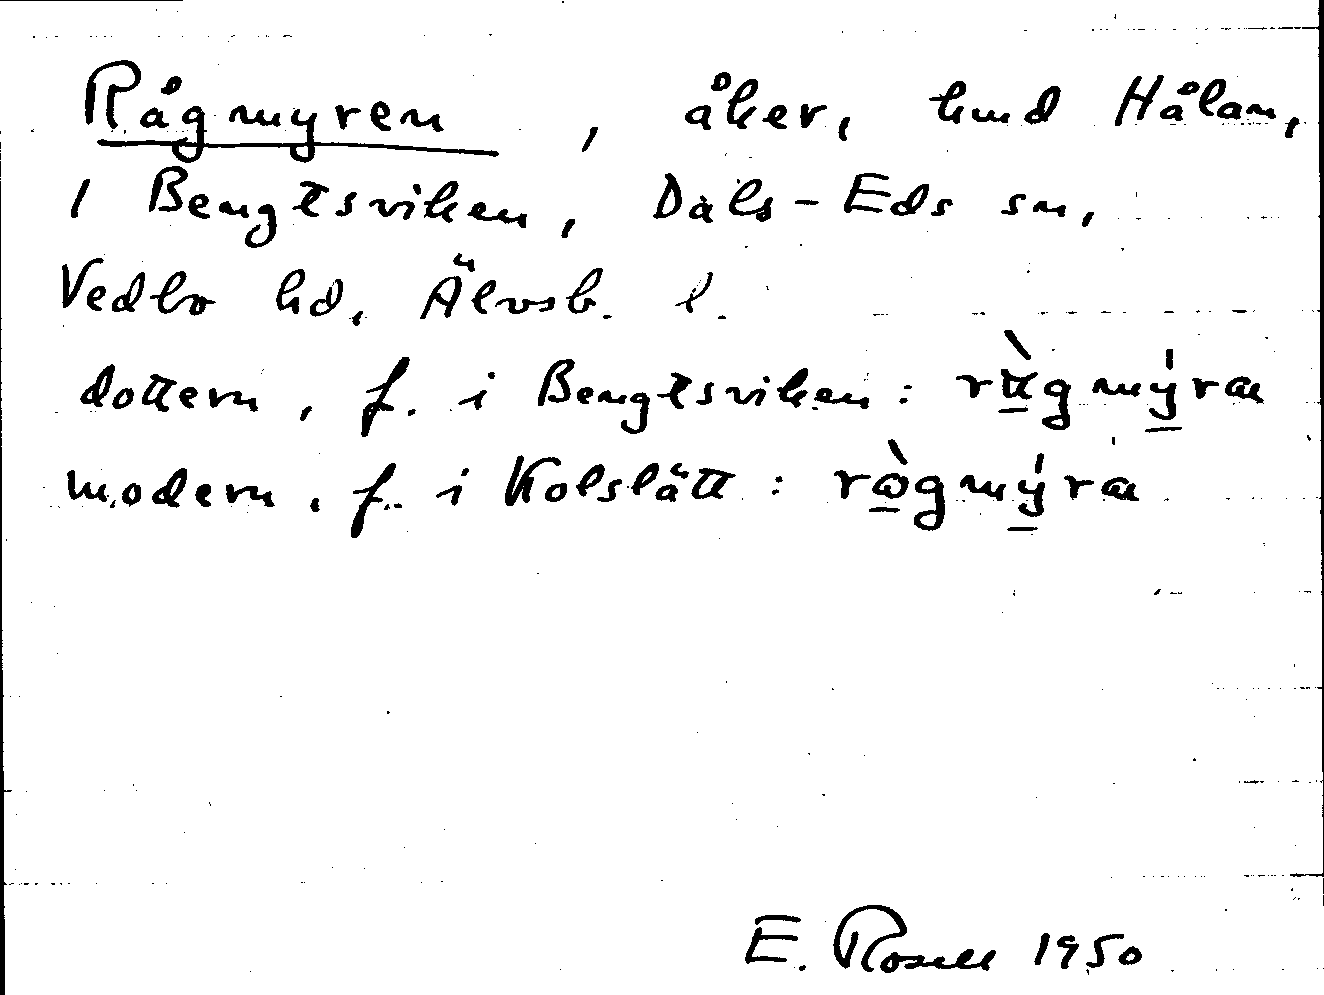 Rågmyren, åker, hmd Hålan,
1 Bengtsviken, Dals-Eds sn,
Vedbo hd, Älvsb. l.
dottern, f. i Bengtsviken: rùgmýra
modern, f. i Kolslätt: rògmýra
E. Rosell 1950